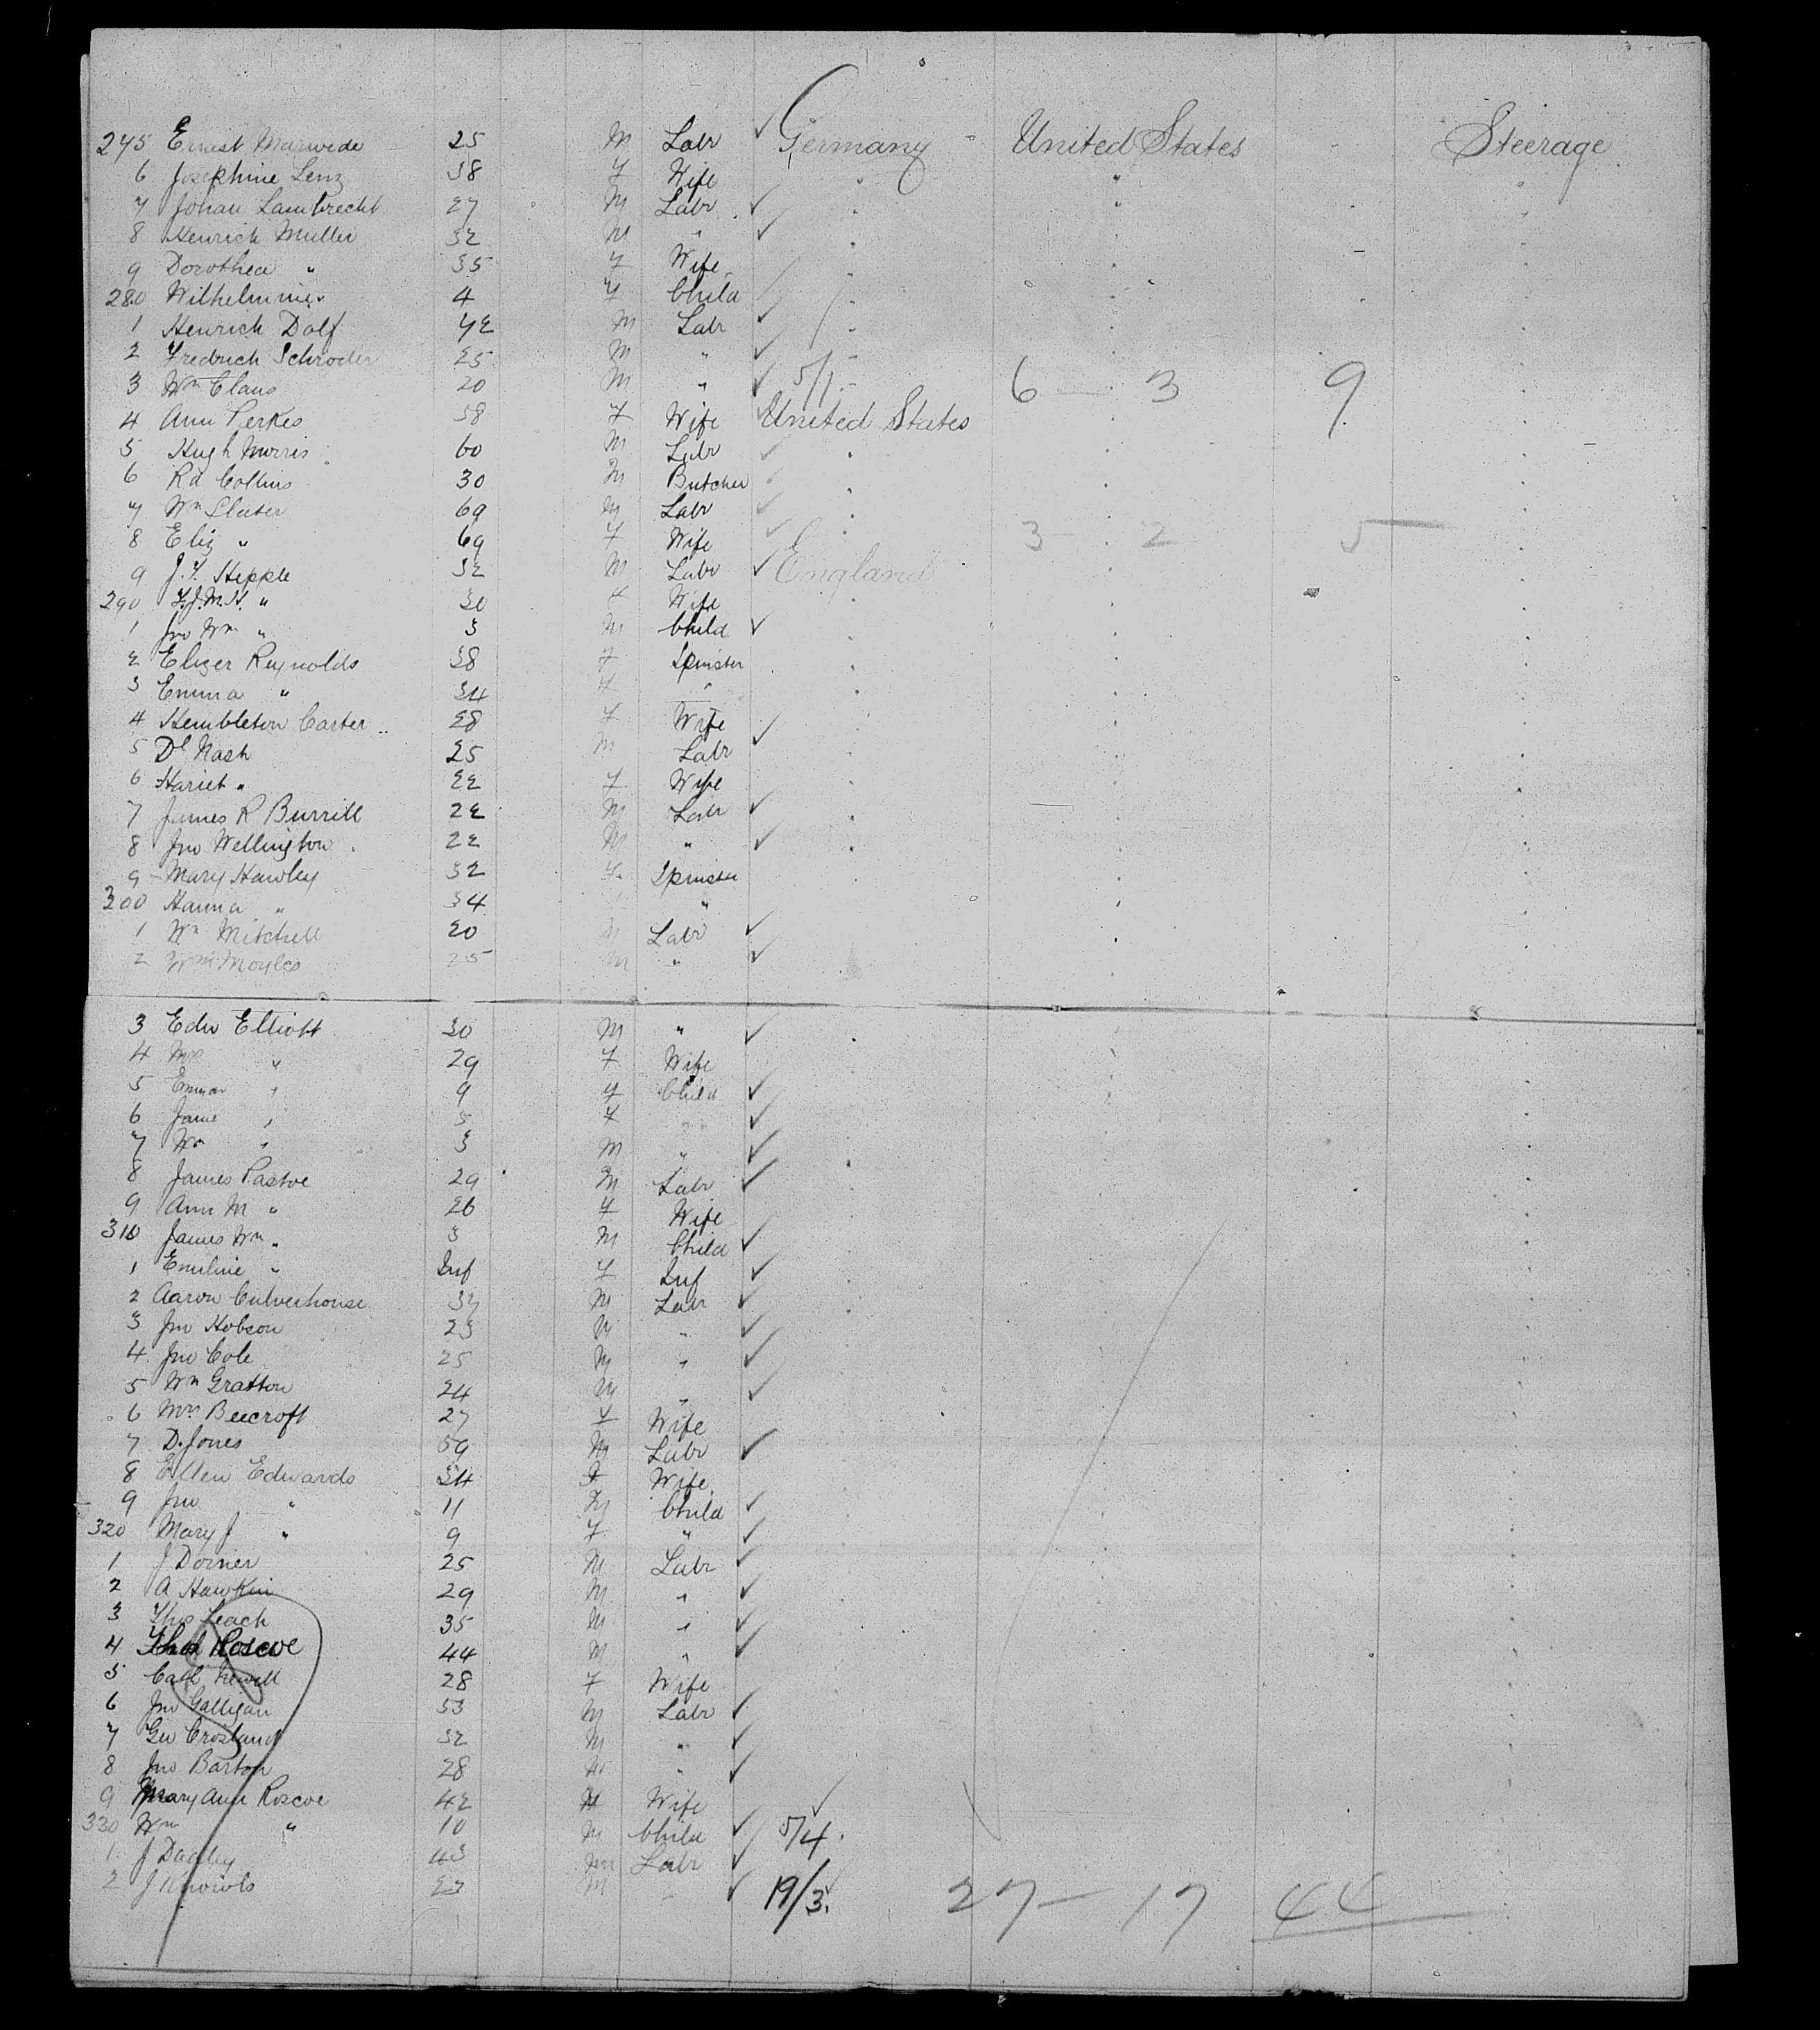 275 Ernest Marwede 25 M Labr ✓ Germany United States Steerage
6 Josephine Lenz 38 F Wife " "
7 Johan Lambrecht 27 M Labr ✓ "
8 Henrich Muller 32 M " ✓
9 Dorothea " 35 F Wife
280 Wilhelmine " 4 F Child
1 Henrich Dolf 42 M Labr ✓
2 Fredrich Schroder 25 M " ✓
3 Wm Claus 20 M " ✓ 5/1 6 - 3 9
4 Ann Perkes 58 F Wife United States
5 Hugh Morris 60 M Labr
6 Rd Collins 30 M Butcher
7 Wm Slater 69 M Labr
8 Eliz " 69 F Wife 3 - 2 5
9 J. T. Hepple 32 M Labr ✓ England
290 F.J.M.H. " 30 F Wife
1 Jno Wm " 3 M Child ✓
2 Elizer Reynolds 38 F Spinster
3 Emma " 34 F "
4 Hembleton Carter 28 F Wife
5 Dl Nash 25 M Labr ✓
6 Hariet " 22 F Wife
7 James R Burrill 22 M Labr ✓
8 Jno Wellington 22 M " ✓
9 Mary Hawley 32 F Spinster
300 Hanna " 34 "
1 Wm Mitchell 20 M Labr ✓
2 Wm Moyles 25 M " ✓
3 Edw Elliott 30 M " ✓
4 Mrs " 29 F Wife
5 Emma " 9 F Child ✓
6 Jane " 5 F " ✓
7 Wm " 3 M " ✓
8 James Pastoe 29 M Labr ✓
9 Ann M " 26 F Wife
310 James Wm " 3 M Child ✓
1 Emiline " Inf F Inf ✓
2 Aaron Culverhouse 37 M Labr ✓
3 Jno Hobson 23 M " ✓
4 Jno Cole 25 M " ✓
5 Wm Gratton 24 M " ✓
6 Mrs Beecroft 27 F Wife
7 D. Jones 59 M Labr ✓
8 Ellen Edwards 34 F Wife
9 Jno " 11 M Child ✓
320 Mary J " 9 F " ✓
1 J Dorner 25 M Labr ✓
2 A Hawkin 29 M " ✓
3 Thos Leach 35 M " ✓
4 Roscoe 44 M " ✓
5 Cath Newell 28 F Wife
6 Jno Galligan 53 M Labr ✓
7 Geo Crosland 32 M " ✓
8 Jno Barton 28 M " ✓
9 Mary Ann Roscoe 42 Wife ✓
330 Wm " 10 M Child ✓ 5/4.
1 J 43 M Labr ✓
2 J M ✓ 19/3. 27 - 17 44